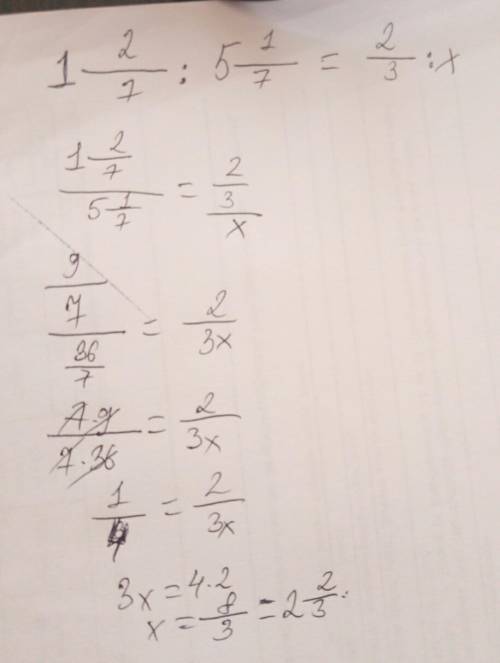 1 2/7 : 5 1/7 = 2/3 : x
(1 2/7)/(5 1/7) = (2/3)/x
(9/7)/(36/7) = 2/(3x)
(7·9)/(7·36) = 2/(3x)
1/4 = 2/(3x)
3x = 4·2
x = 8/3 = 2 2/3.